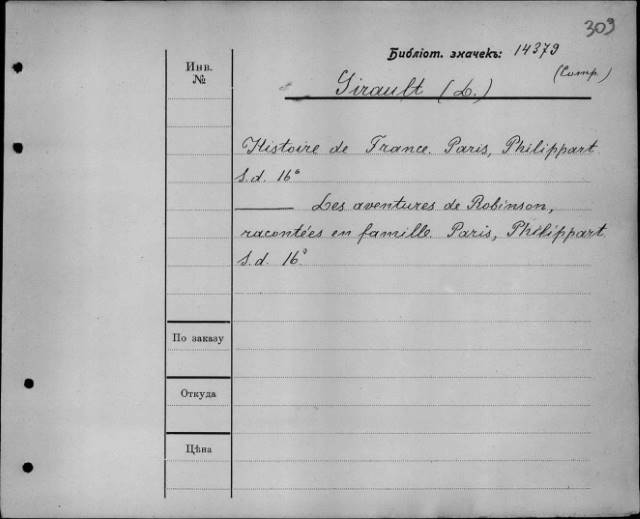 309
Библіот. значекъ: 14379
(Comp.)
Инв.
№
Girault (L.)
Histoire de France. Paris, Philippart.
S.d. 16°
——— Les aventures de Robinson,
racontées en famille. Paris, Philippart.
S.d. 16°
По заказу
Откуда
Цѣна